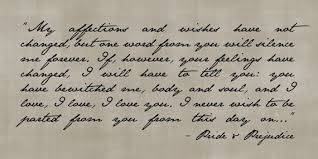 "My affections and wishes have not
changed, but one word from you will silence
me forever. If, however, your feelings have
changed, I will have to tell you: you
have bewitched me, body and soul, and I
love, I love, I love you. I never wish to be
parted from you from this day on..."
- Pride & Prejudice